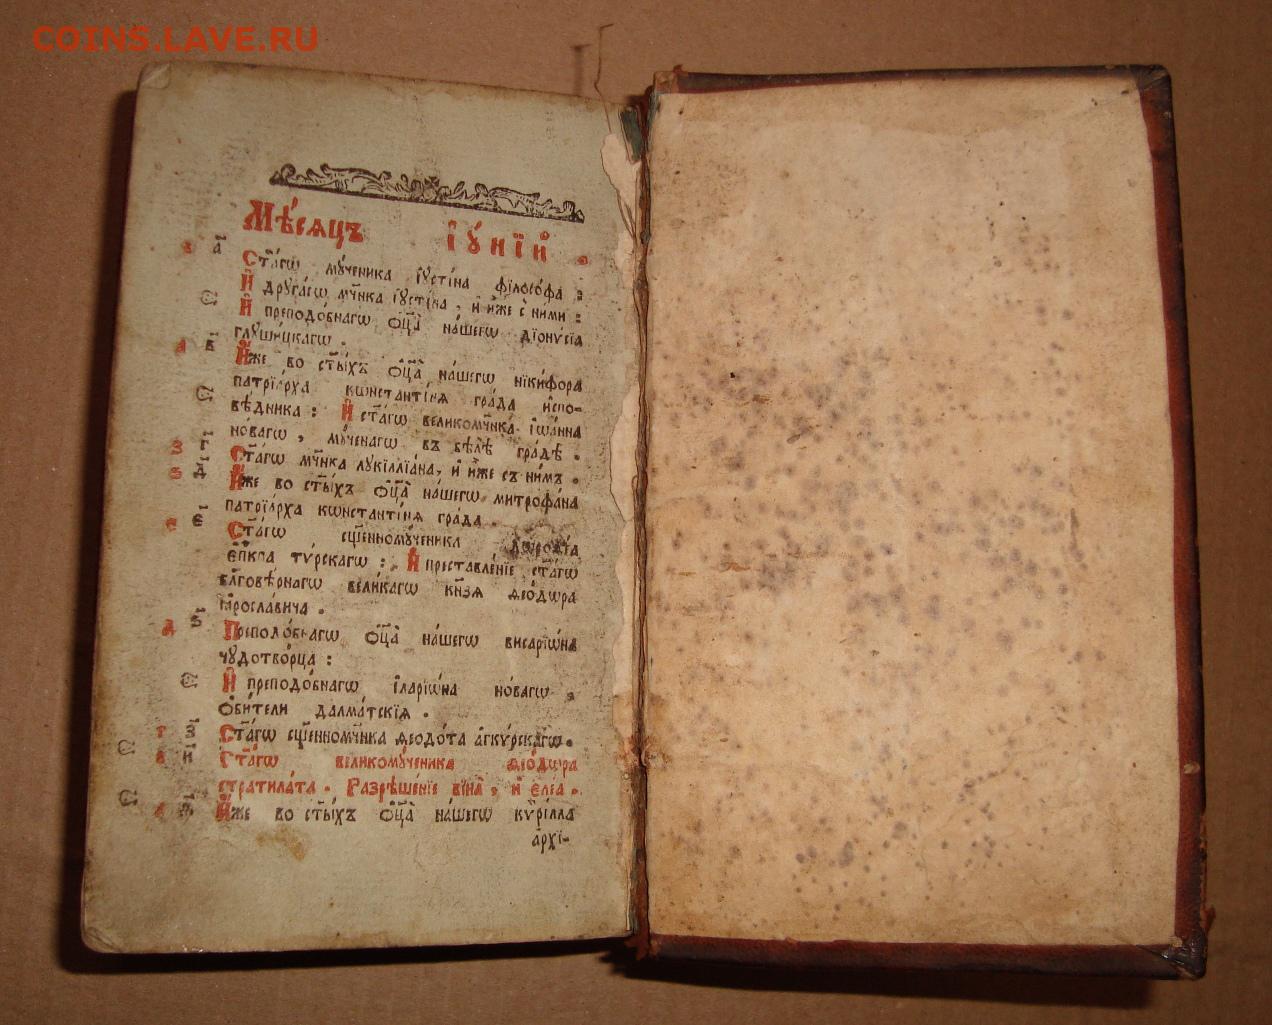 COINS.LAVE.RU
Мѣ́сяцъ і҆ꙋ́нїй .
з҃ а҃ Ст҃а́гѡ мꙋ́ченика і҆ꙋсті́на фїло́софа :
И҆ дрꙋга́гѡ мч҃нка і҆ꙋсті́на , и҆ и҆́же с ни́ми :
И҆ преподо́бнагѡ ѻ҆ц҃а̀ на́шегѡ дїонѵ́сїа
глꙋши́цкагѡ .
в҃ И҆́же во ст҃ы́хъ ѻ҆ц҃а̀ на́шегѡ нїки́фора
патрїа́рха кѡнстанті́нѧ гра́да и҆спо-
вѣ́дника : И҆ ст҃а́гѡ великомч҃нка і҆ѡа́нна
но́вагѡ , мꙋ́ченагѡ въ бѣ́лѣ гра́дѣ .
г҃ Ст҃а́гѡ мч҃нка лꙋкїллїа́на , и҆ и҆́же съ ни́мъ .
д҃ И҆́же во ст҃ы́хъ ѻ҆ц҃а̀ на́шегѡ митрофа́на
патрїа́рха кѡнстанті́нѧ гра́да .
є҃ Ст҃а́гѡ сщ҃енномꙋ́ченика дѡроѳе́а
є҆п҃кпа тѵ́рскагѡ : И҆ преставле́нїе ст҃а́гѡ
бл҃говѣ́рнагѡ вели́кагѡ кн҃зѧ ѳео́дѡра
ꙗ҆росла́вича .
ѕ҃ Преподо́бнагѡ ѻ҆ц҃а̀ на́шегѡ висарїѡ́на
чꙋдотво́рца :
И҆ преподо́бнагѡ і҆ларїѡ́на но́вагѡ ,
ѻ҆би́тели далма́тскїѧ .
з҃ Ст҃а́гѡ сщ҃енномч҃нка ѳеодо́та а҆гкѵ́рскагѡ .
и҃ Ст҃а́гѡ великомꙋ́ченика ѳео́дѡра
стратила́та . Разрѣше́нїе вїна̀ , и҆ є҆ле́а .
И҆́же во ст҃ы́хъ ѻ҆ц҃а̀ на́шегѡ кѵрі́лла
а҆рхї-